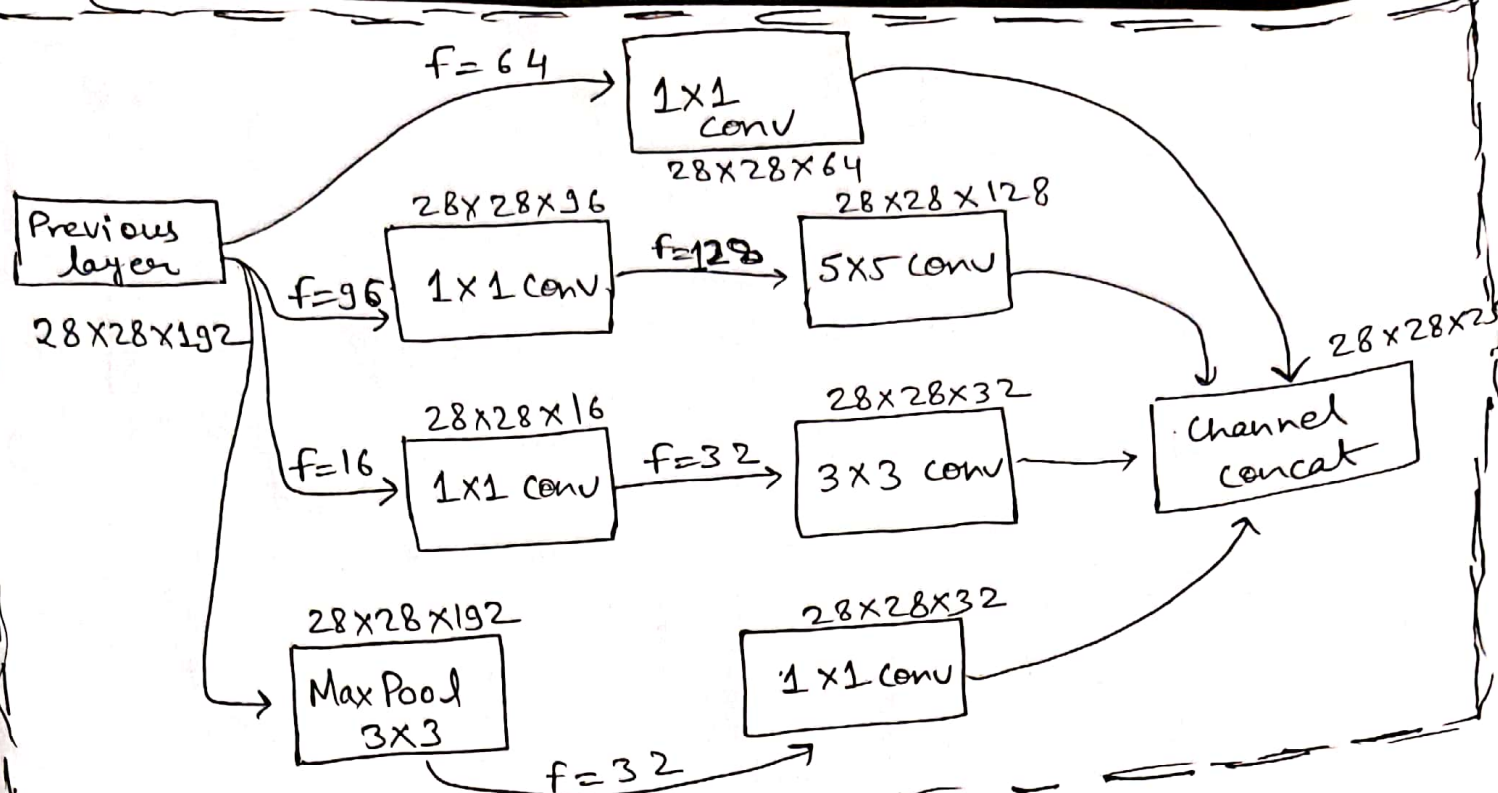 f=64
1x1
conv
28x28x64
Previous
layer
28x28x192
28x28x96
f=96
1x1 conv
f=128
28x28x128
5x5 conv
28x28x16
f=16
1x1 conv
f=32
28x28x32
3x3 conv
28x28x2
Channel
concat
28x28x192
Max Pool
3x3
f=32
28x28x32
1x1 conv